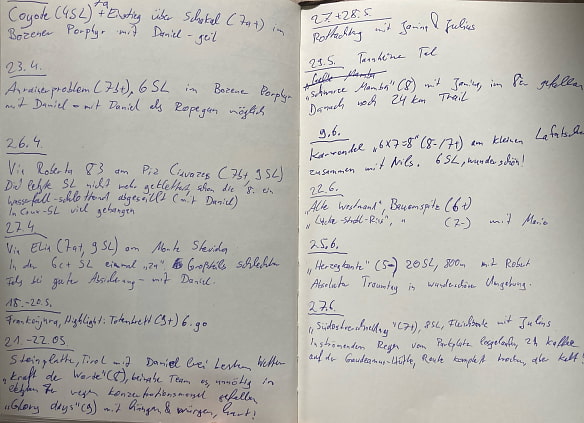 Coyote (4SL) + Einstieg über Schakal (7a+) im
Bozener Porphyr mit Daniel - geil
23.4.
(7b+), 6 SL im Bozener Porphyr
mit Daniel - mit Daniel als Ropegun möglich
26.4.
Via Roberta 83 am Piz Ciavazes (7b+, 9 SL)
Die letzte SL nicht mehr geklettert, schon die 8. ein
abgeseilt (mit Daniel)
In Crux-SL viel gehangen
27.4.
Via Elia (7a+, 9 SL) am Monte Stevida
In der 6c+ SL einmal "zu", Großteils schlechter
Fels bei guter Absicherung - mit Daniel.
18.-20.5.
Frankenjura, Highlight: Totenbrett (9+) 6. go
21.-22.05.
Steinplatte, Tirol mit Daniel bei bestem Wetter
"Kraft der Worte" (8), unnötig in
wegen Konzentrationsmangel gefallen
"Glory days" (9) mit hängen & würgen, hart!
27.+28.5
mit Janina & Julius
29.5. Tannheimer Tal
"schwarze Mamba" (8) mit Janina, im 8er gefallen
Danach noch 24 km Trail
9.6.
Karwendel "6x7=8" (8-/7+) am kleinen Lafatscher
zusammen mit Nils. 6SL, wunderschön!
22.6.
"Alte Westwand", Bauernspitz (6+)
" (7-) mit Mario
25.6.
"Herzogkante" (5-) 20SL, 800m mit Robert
Absoluter Traumtag in wunderschöner Umgebung.
27.6.
(7+), 8SL, Fleischbank mit Julius
In strömendem Regen vom Parkplatz losgelaufen, 2h Kaffee
auf der Gaudeamus-Hütte, Route komplett trocken, aber kalt!